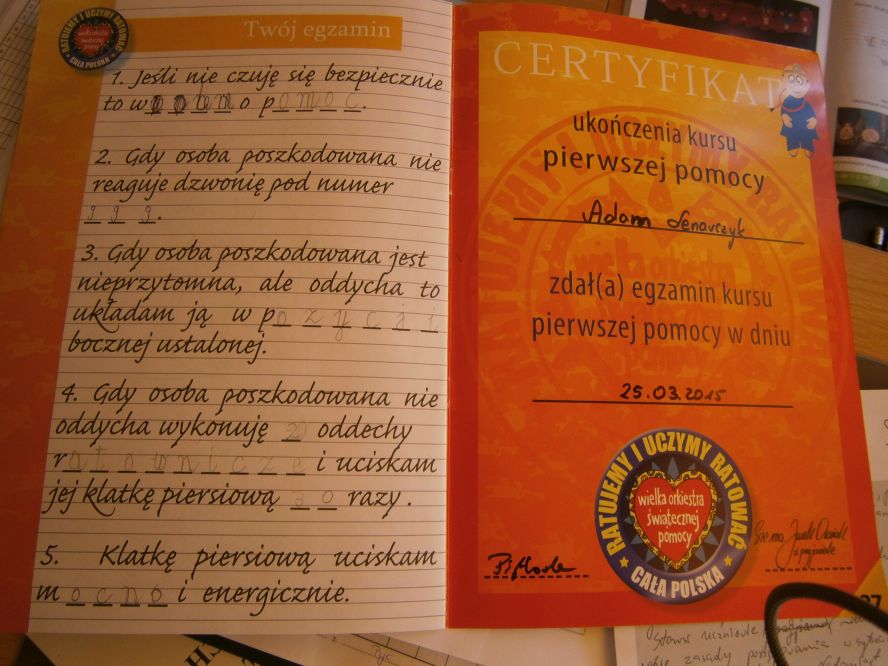 RATUJEMY I UCZYMY RATOWAĆ
wielka orkiestra
świątecznej
pomocy
CAŁA POLSKA
Twój egzamin
1. Jeśli nie czuję się bezpiecznie
to wołam o pomoc.
2. Gdy osoba poszkodowana nie
reaguje dzwonię pod numer
999.
3. Gdy osoba poszkodowana jest
nieprzytomna, ale oddycha to
układam ją w pozycji
bocznej ustalonej.
4. Gdy osoba poszkodowana nie
oddycha wykonuję 2 oddechy
ratownicze i uciskam
jej klatkę piersiową 30 razy.
5. Klatkę piersiową uciskam
mocno i energicznie.
CERTYFIKAT
ukończenia kursu
pierwszej pomocy
Adam Lenarczyk
zdał(a) egzamin kursu
pierwszej pomocy w dniu
25.03.2015
RATUJEMY I UCZYMY RATOWAĆ
wielka orkiestra
świątecznej
pomocy
CAŁA POLSKA
Siema
37